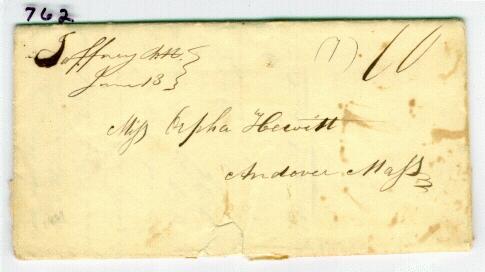 762
Jaffney N.H.
June 13
(1) 10
Miss Orpha Hewitt
Andover Mass